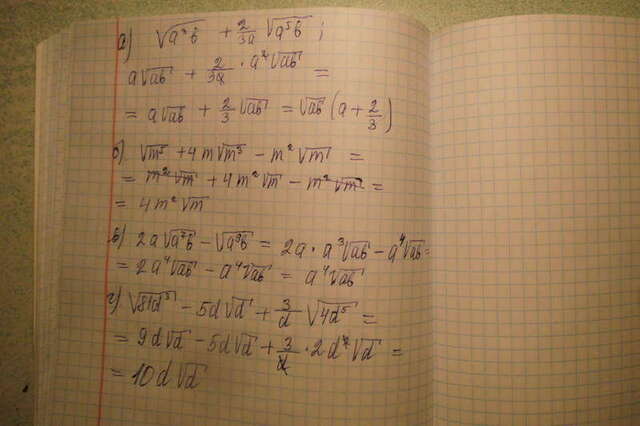 а) √a³b + 2/3a √a⁵b ;
a√ab + 2/3a · a²√ab =
= a√ab + 2/3 √ab = √ab (a + 2/3)
б) √m⁵ + 4m√m³ − m²√m =
= m²√m + 4m²√m − m²√m =
= 4m²√m
в) 2a√a⁷b − √a⁹b = 2a · a³√ab − a⁴√ab =
= 2a⁴√ab − a⁴√ab = a⁴√ab
г) √81d³ − 5d√d + 3/d √4d⁵ =
= 9d√d − 5d√d + 3/d · 2d²√d =
= 10d√d